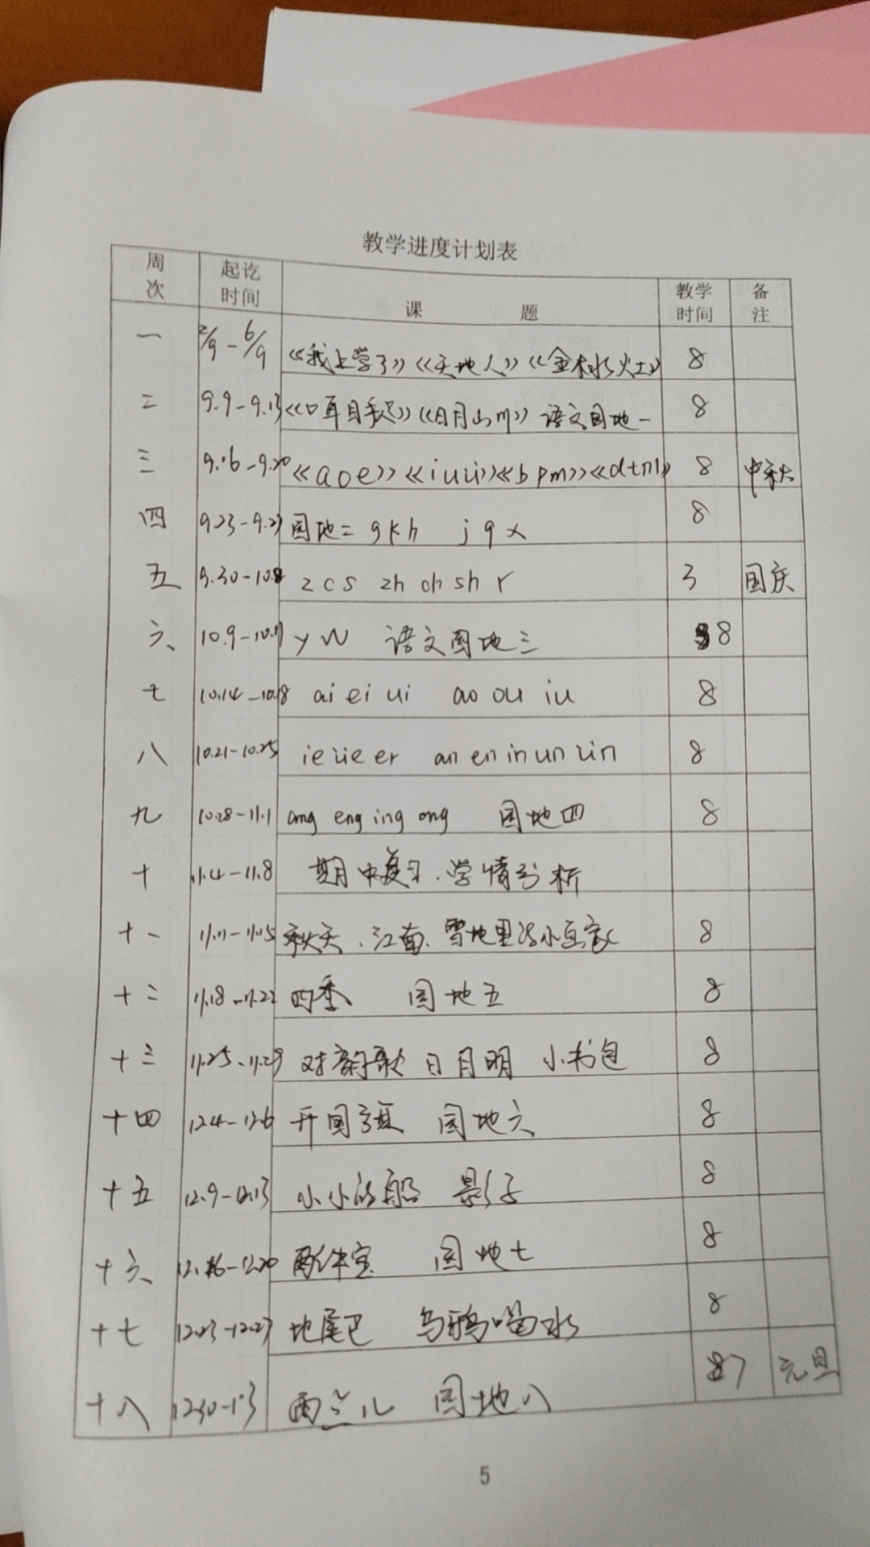 教学进度计划表
周次 起讫时间 课题 教学时间 备注
一 2/9-6/9 《我上学了》《天地人》《金木水火土》 8
二 9.9-9.13 《口耳目手足》《日月山川》 语文园地一 8
三 9.16-9.20 《aoe》《iuü》《bpm》《dtnl》 8 中秋
四 9.23-9.27 园地二 gkh jqx 8
五 9.30-10.8 zcs zh ch sh r 3 国庆
六、 10.9-10.11 yw 语文园地三 8
七 10.14-10.18 ai ei ui ao ou iu 8
八 10.21-10.25 ie üe er an en in un ün 8
九 10.28-11.1 ang eng ing ong 园地四 8
十 11.4-11.8 期中复习.学情分析
十一 11.11-11.15 秋天、江南、雪地里的小画家 8
十二 11.18-11.22 四季 园地五 8
十三 11.25-11.29 对韵歌 日月明 小书包 8
十四 12.4-12.6 升国旗 园地六 8
十五 12.9-12.13 小小的船 影子 8
十六 12.16-12.20 两件宝 园地七 8
十七 12.23-12.27 比尾巴 乌鸦喝水 8
十八 12.30-1.3 雨点儿 园地八 7 元旦
5